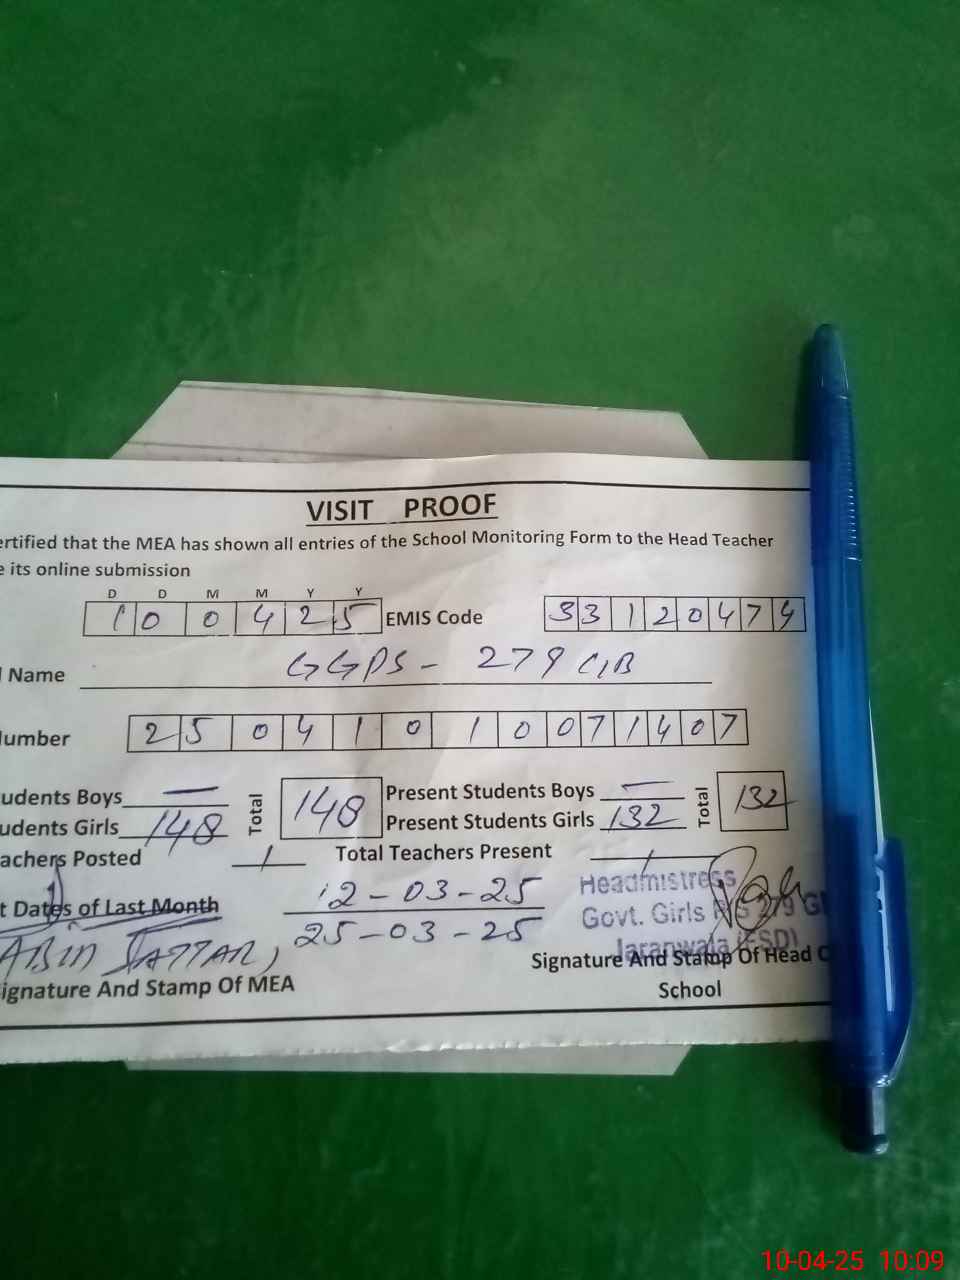 VISIT PROOF
ertified that the MEA has shown all entries of the School Monitoring Form to the Head Teacher
e its online submission
D D M M Y Y
1 0 0 4 2 5 EMIS Code 3 3 1 2 0 4 7 4
l Name GGPS - 279 G/B
umber 2 5 0 4 1 0 1 0 0 7 1 4 0 7
udents Boys — Total 148 Present Students Boys — Total 132
udents Girls 148 Present Students Girls 132
achers Posted 1 Total Teachers Present 1
t Dates of Last Month 12-03-25
25-03-25
Headmistress
Govt. Girls P/S 279 G
Jaranwala (FSD)
ABID SATTAR
ignature And Stamp Of MEA
Signature And Stamp Of Head O
School
10-04-25 10:09